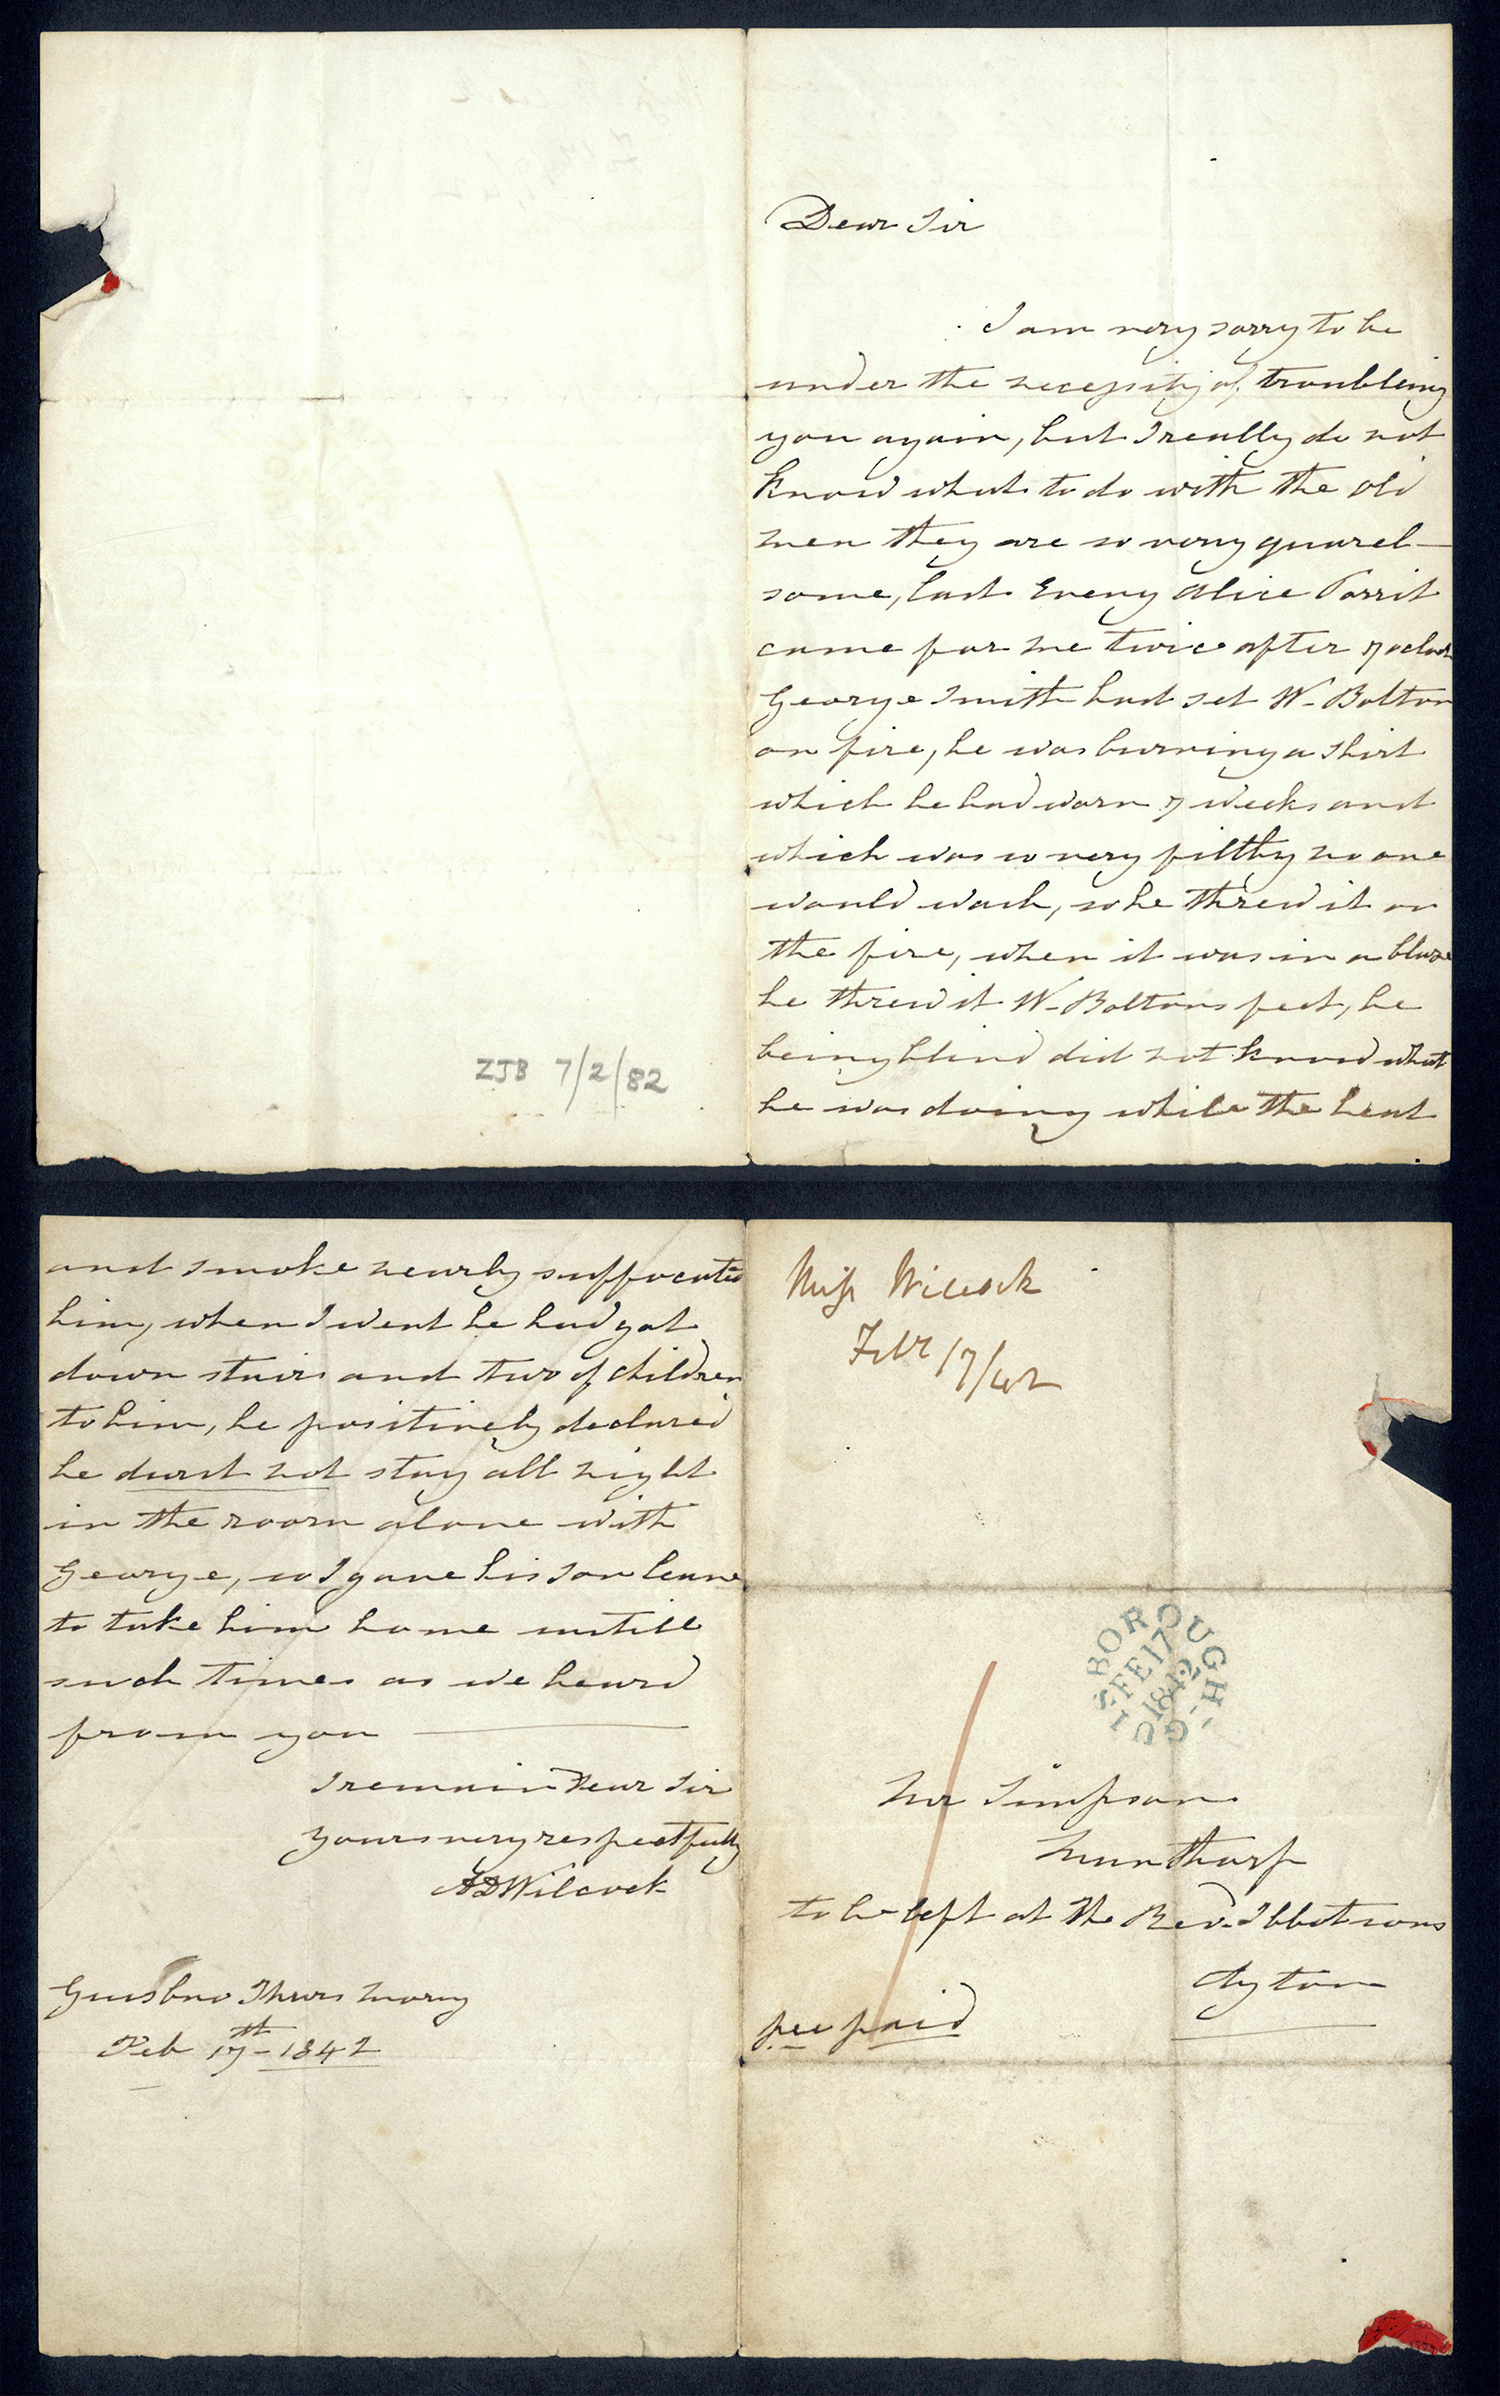 Dear Sir
I am very sorry to be
under the necessity of troubleing
you again, but I really do not
know what to do with the old
men they are so very quarel-
some, last Eveng Alice Porrit
came for me twice after 7 oclock
George Smith had set W. Bolton
on fire, he was burning a Shirt
which he had worn 7 weeks and
which was so very filthy no one
would wash, so he threw it on
the fire, when it was in a blaze
he threw it W. Boltons feet, he
being blind did not know what
he was doing while the heat
ZJB 7/2/82
and smoke nearly suffocated
him, when I went he had got
down stairs and two of children
to him, he positively declared
he durst not stay all night
in the room alone with
George, so I gave his son leave
to take him home untill
such times as we heard
from you
I remain Dear Sir
yours very respectfully
A D Wilcock
Guisbro Thurs Morng
Feb 17th - 1842
Miss Wilcock
Febr 17/42
GUISBOROUGH
FE 17
1842
Mr Simpson
Nunthorp
to be left at the Revd. Ibbotsons
Ayton
pre paid